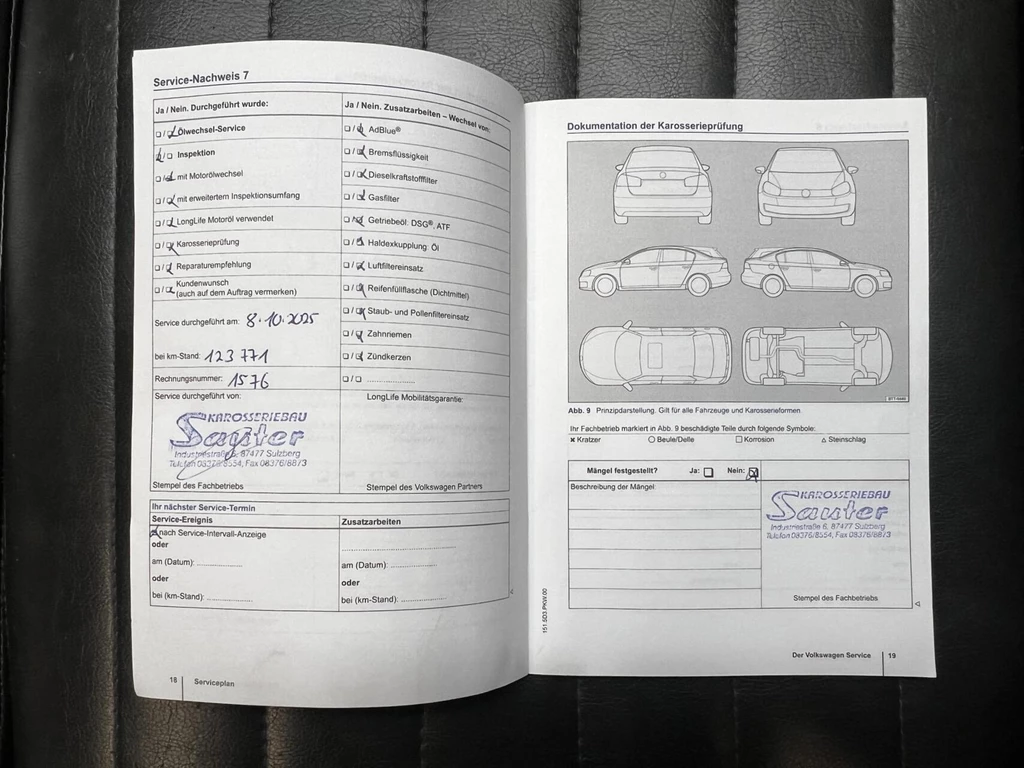 Service-Nachweis 7
Ja / Nein. Durchgeführt wurde:
Ölwechsel-Service
Inspektion
mit Motorölwechsel
mit erweitertem Inspektionsumfang
LongLife Motoröl verwendet
Karosserieprüfung
Reparaturempfehlung
Kundenwunsch
(auch auf dem Auftrag vermerken)
Service durchgeführt am: 8.10.2025
bei km-Stand: 123 771
Rechnungsnummer: 1576
Service durchgeführt von:
KAROSSERIEBAU
Sauter
Industriestraße 6, 87477 Sulzberg
Telefon 08376/8554, Fax 08376/8873
Stempel des Fachbetriebs
Ja / Nein. Zusatzarbeiten – Wechsel von:
AdBlue®
Bremsflüssigkeit
Dieselkraftstofffilter
Gasfilter
Getriebeöl: DSG®, ATF
Haldexkupplung: Öl
Luftfiltereinsatz
Reifenfüllflasche (Dichtmittel)
Staub- und Pollenfiltereinsatz
Zahnriemen
Zündkerzen
LongLife Mobilitätsgarantie:
Stempel des Volkswagen Partners
Ihr nächster Service-Termin
Service-Ereignis
nach Service-Intervall-Anzeige
oder
am (Datum):
oder
bei (km-Stand):
Zusatzarbeiten
am (Datum):
oder
bei (km-Stand):
18 Serviceplan
Dokumentation der Karosserieprüfung
Abb. 9 Prinzipdarstellung. Gilt für alle Fahrzeuge und Karosserieformen.
Ihr Fachbetrieb markiert in Abb. 9 beschädigte Teile durch folgende Symbole:
× Kratzer ○ Beule/Delle □ Korrosion △ Steinschlag
Mängel festgestellt? Ja: Nein:
Beschreibung der Mängel:
KAROSSERIEBAU
Sauter
Industriestraße 6, 87477 Sulzberg
Telefon 08376/8554, Fax 08376/8873
Stempel des Fachbetriebs
151.5D3.PKW.00
Der Volkswagen Service 19